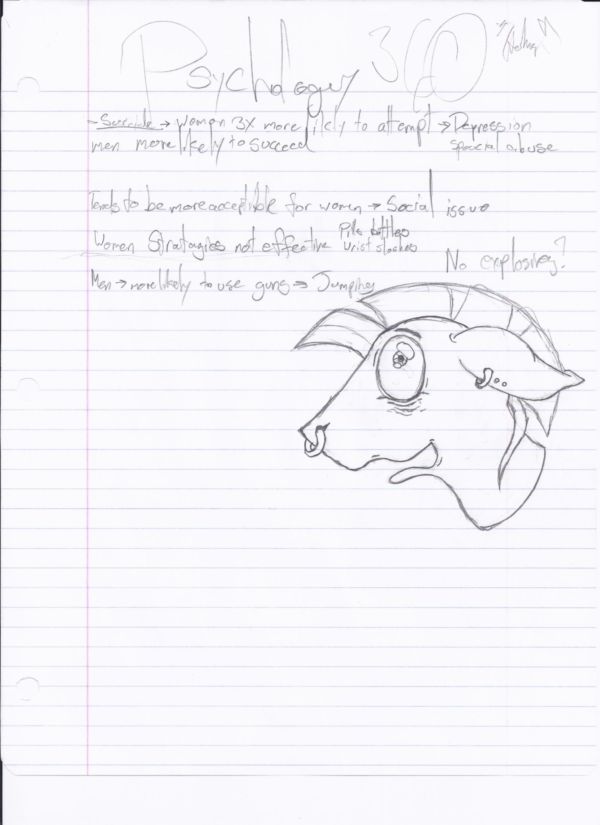 Psychology 360
- Suicide → women 3x more likely to attempt → Depression
men more likely to succeed
abuse
Tends to be more acceptible for women → Social issue
Women Stratagies not effective
Pill bottles
Wrist slashes
No explosives?
Men → more likely to use guns → Jumping